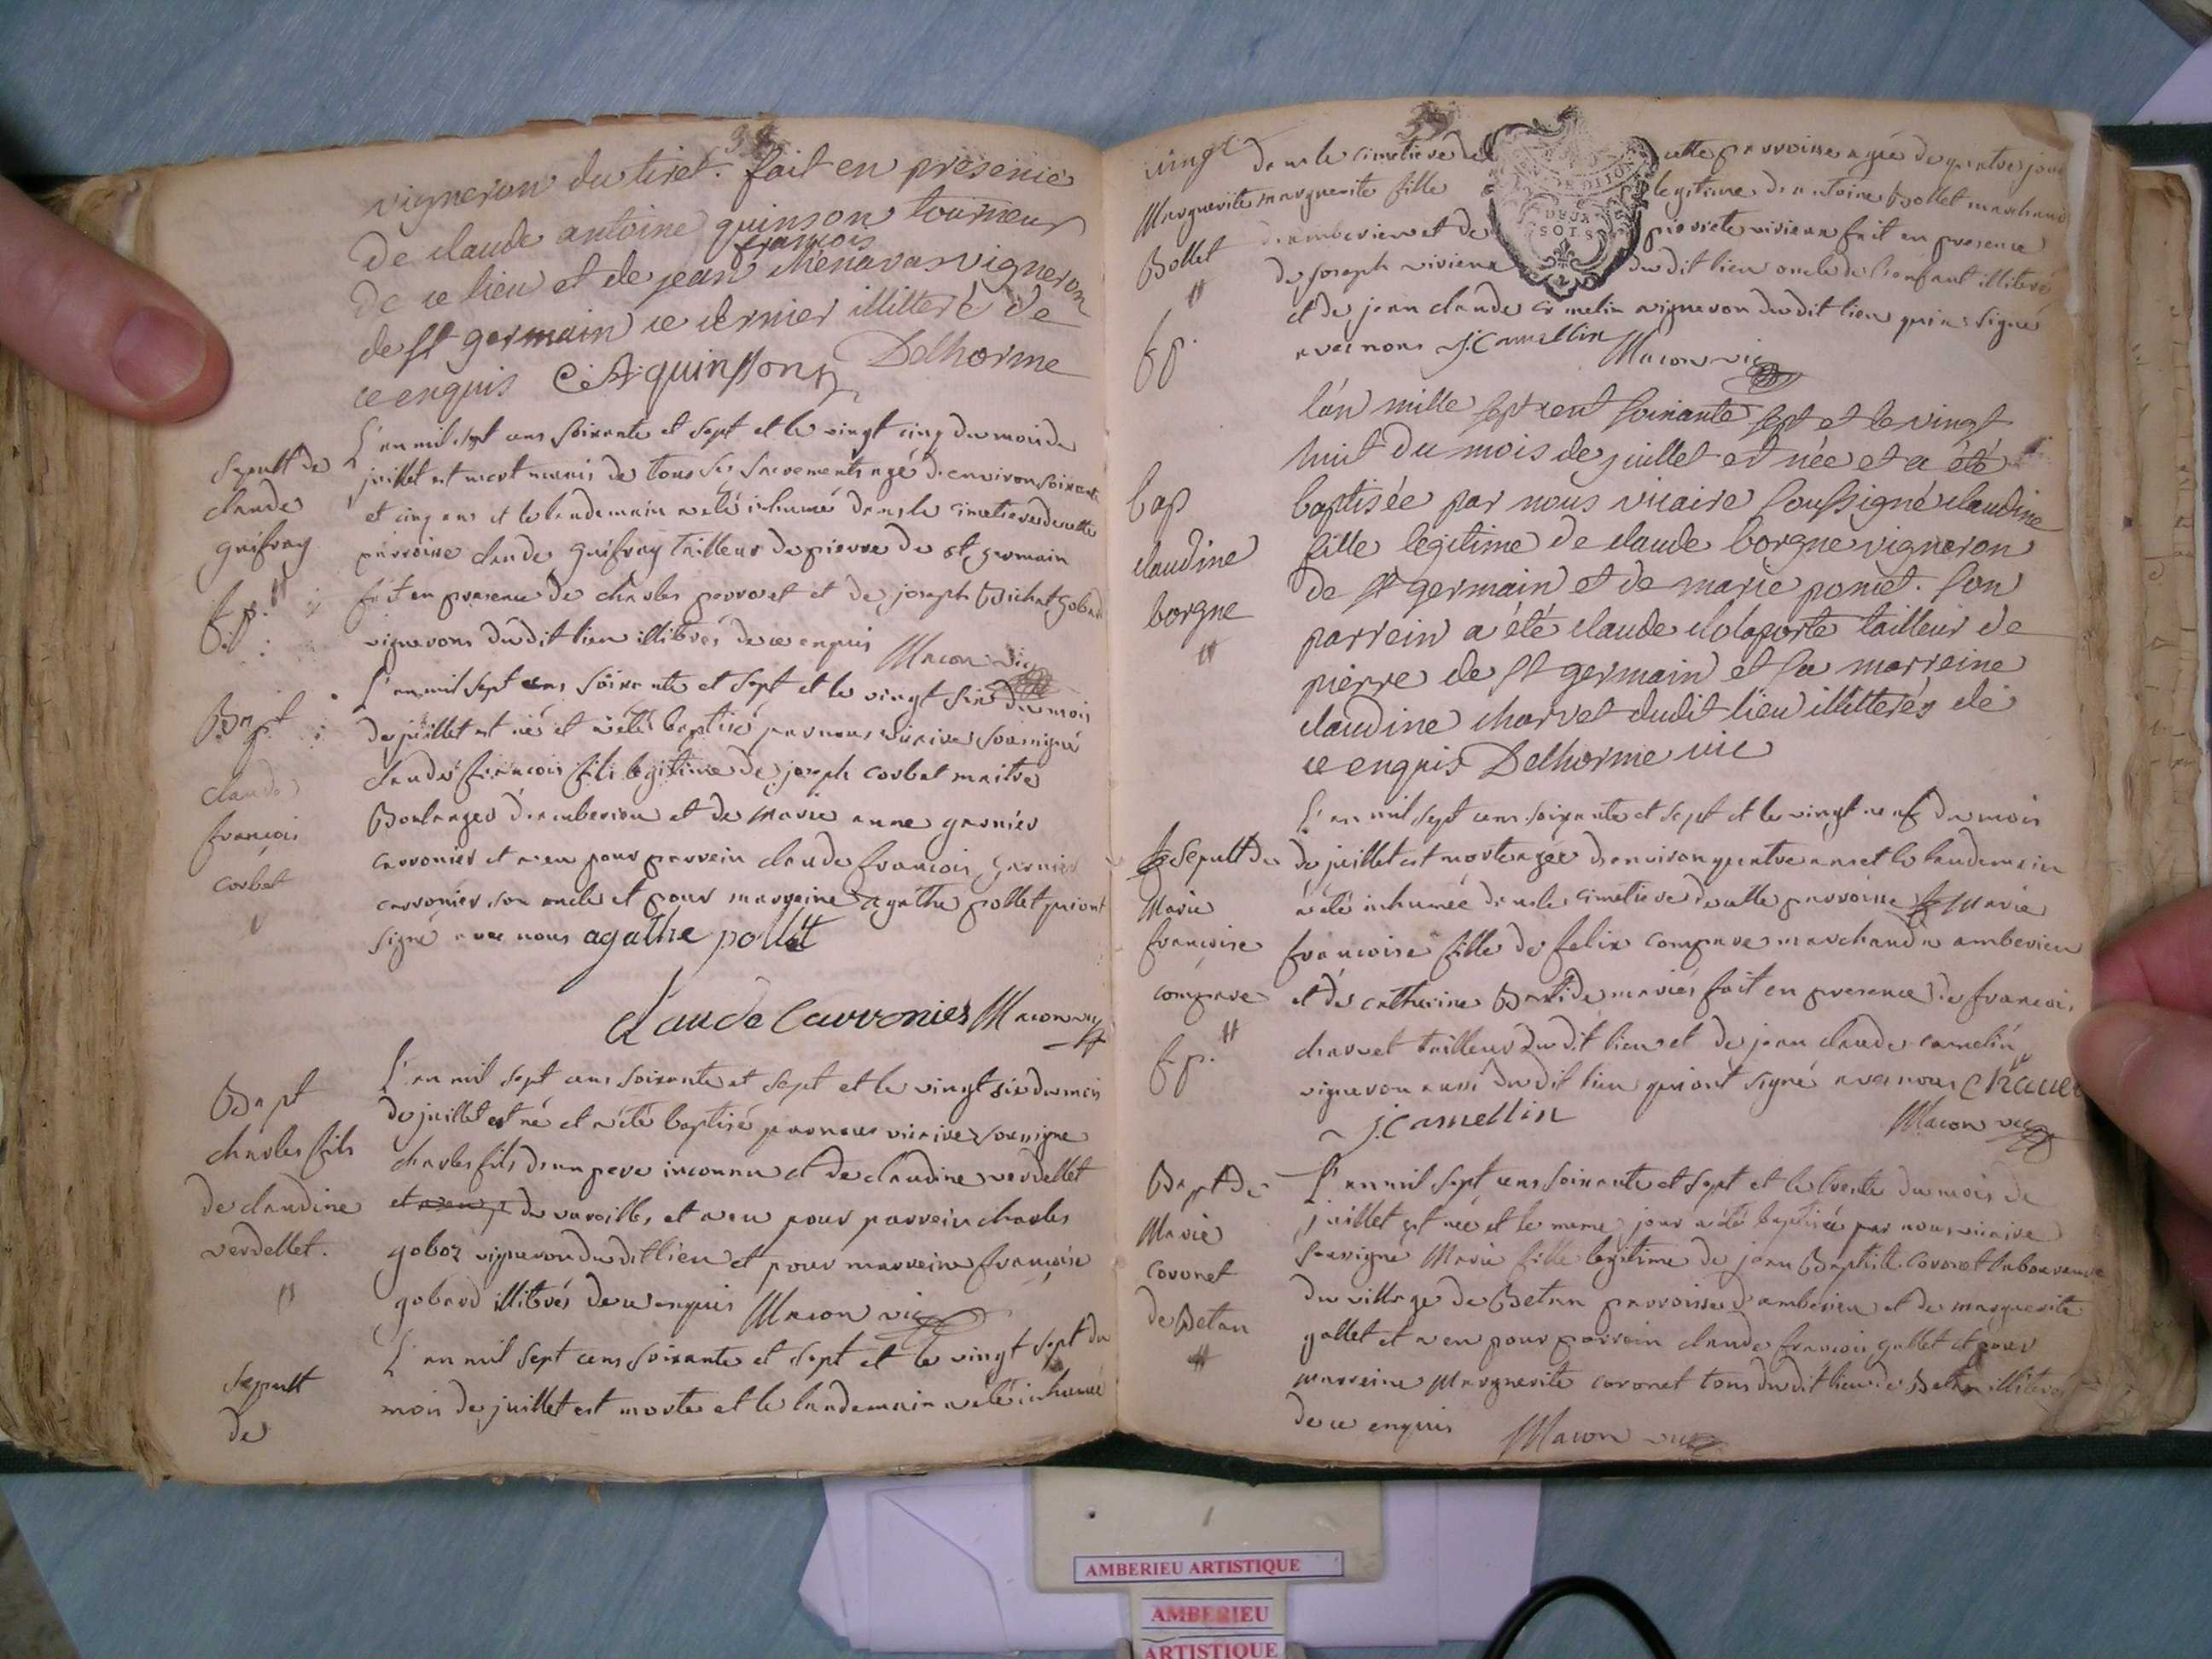 vigneron du tiret. fait en presence
de claude antoine quinson tourneur
françois
de ce lieu et de jean chenavas vigneron
de st germain ce dernier illitteré de
ce enquis C: A: quinsson Delhorme
Sepult de
claude
guifray
f. p.
L'an mil sept cens soixante et sept et le vingt cinq du mois de
juillet est mort munis de tous ses sacrements agé d'environ soixante
et cinq ans et le landemain a eté inhumé dans le cimetiere de cette
parroisse claude guifray tailleur de pierre de st germain
fait en presence de charles provoset et de joseph Brichat gobard
vignerons dudit lieu illitrés de ce enquis Macon vic
Bapt
claude
françois
corbet
L'an mil sept cens soixante et sept et le vingt six du mois
de juillet est né et a eté baptisé par nous vicaire soussigné
claude françois fils legitime de joseph corbet maitre
Boulanger d'amberieu et de marie anne garnier
carronier et a eu pour parrein claude françois garnier
carronier son oncle et pour marreine agathe pollet qui ont
signé avec nous agathe pollet
claude carronier Macon vic
Bapt
charles fils
de claudine
verdellet.
L'an mil sept cens soixante et sept et le vingt six du mois
de juillet est né et a eté baptisé par nous vicaire soussigné
charles fils d'un pere inconnu et de claudine verdellet
de vareille, et a eu pour parrein charles
goboz vigneron dudit lieu et pour marreine françoise
gobard illitrés de ce enquis Macon vic
Sepult
de
L'an mil sept cens soixante et sept et le vingt sept du
mois de juillet est morte et le landemain a eté inhumée
Marguerite
Bollet
f. p.
dans le cimetiere de cette parroisse agée de quatre jours
marguerite fille legitime d'antoine Bollet marchand
d'amberieu et de pierrete vivien fait en presence
de joseph vivien dudit lieu oncle de l'enfant illitré
et de jean claude camelin vigneron dudit lieu qui a signé
avec nous J: Camellin Macon vic
DE DIJON
DEUX
SOLS
bap
claudine
borgne
l'an mille sept cent soixante sept et le vingt
huit du mois de juillet est née et a été
baptisée par nous vicaire soussigné claudine
fille legitime de claude borgne vigneron
de st germain et de marie poncet. son
parrein a été claude delaporte tailleur de
pierre de st germain et sa marreine
claudine charvet dudit lieu illitterés de
ce enquis Delhorme vic
Sepult de
Marie
françoise
compare
f. p.
L'an mil sept cens soixante et sept et le vingt neuf du mois
de juillet est morte agée d'environ quatre ans et le landemain
a eté inhumée dans le cimetiere de cette parroisse Marie
françoise fille de felix compare marchand a amberieu
et de catherine Bastide mariés fait en presence de françois
charvet tailleur dudit lieu et de jean claude camelin
vigneron aussi dudit lieu qui ont signé avec nous
J: Camellin Macon vic
Bapt de
Marie
coronet
de Betan
L'an mil sept cens soixante et sept et le trente du mois de
juillet est née et le meme jour a eté baptisée par nous vicaire
soussigné Marie fille legitime de jean Baptiste coronet laboureur
du village de Betan parroisse d'amberieu et de marguerite
gallet et a eu pour parrein claude françois gallet et pour
marreine Marguerite coronet tous dudit lieu de Betan illitrés
de ce enquis Macon vic
AMBERIEU ARTISTIQUE
AMBERIEU
ARTISTIQUE